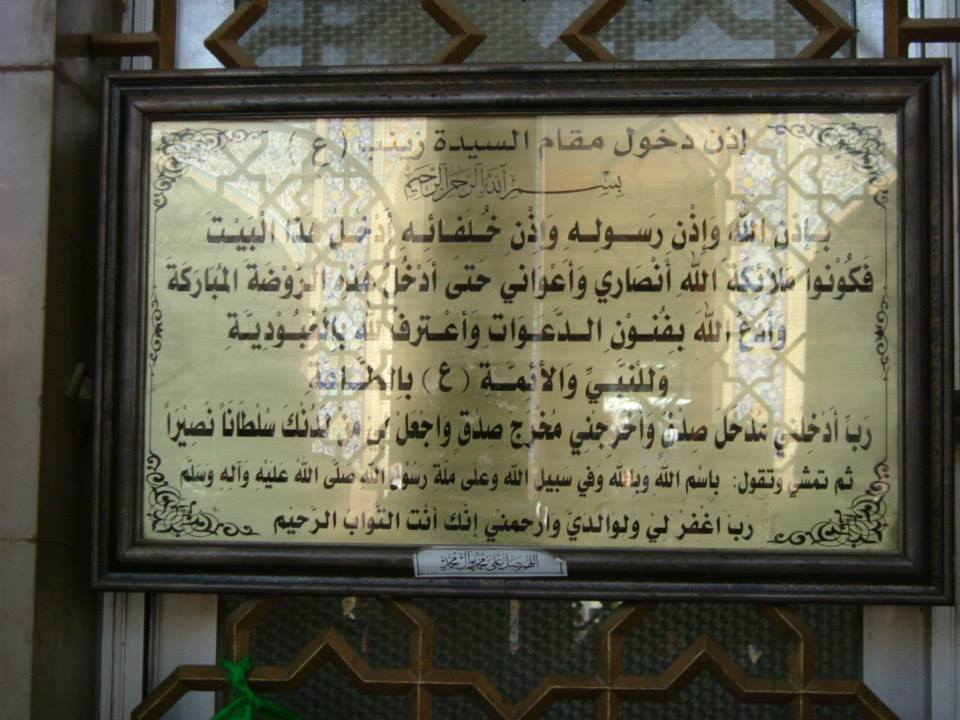 إذن دخول مقام السيدة زينب (ع)
بِسْمِ اللهِ الرَّحْمٰنِ الرَّحِيْمِ
بِإذنِ اللّٰهِ وَإِذْنِ رَسـولِـهِ وَإِذْنِ خُـلَفـائـهِ أدْخُل هذا الْبَيْـتَ
فَكُوْنوا مَلائكةَ اللّٰهِ أَنْصَاري وَأعواني حَتى أدْخُلَ هذهِ الرَّوْضَةَ المُبارَكَةَ
وَأدْعُ اللّٰهَ بِفُنوْنِ الـدَّعـوَاتِ وَأعْـترفُ للّٰهِ بِالْعُبـُوْدِيَّـةِ
وَللنَّبيِّ والأئمَّـةِ (ع) بالطَّـاعَةِ
رَبِّ أَدْخِلْني مُدْخَلَ صِدْقٍ وَأَخْرِجْني مُخْرَجَ صِدْقٍ وَاجعَلْ لِي مِنْ لَدُنْكَ سُلْطَاناً نَصِيْراً
ثم تمشي وتقول: باسْمِ اللّٰهِ وَباللّٰهِ وَفي سَبيلِ اللّٰهِ وعلى ملّة رَسُوْلِ اللّٰهِ صلَّى اللّٰهُ عَلَيْهِ وَآلهِ وَسَلَّم
ربِّ اغفرْ ليْ ولوالديَّ وارْحمنيْ إنَّك أنْتَ التَّوابُ الرَّحيْم
اللهم صل على محمد وآل محمد